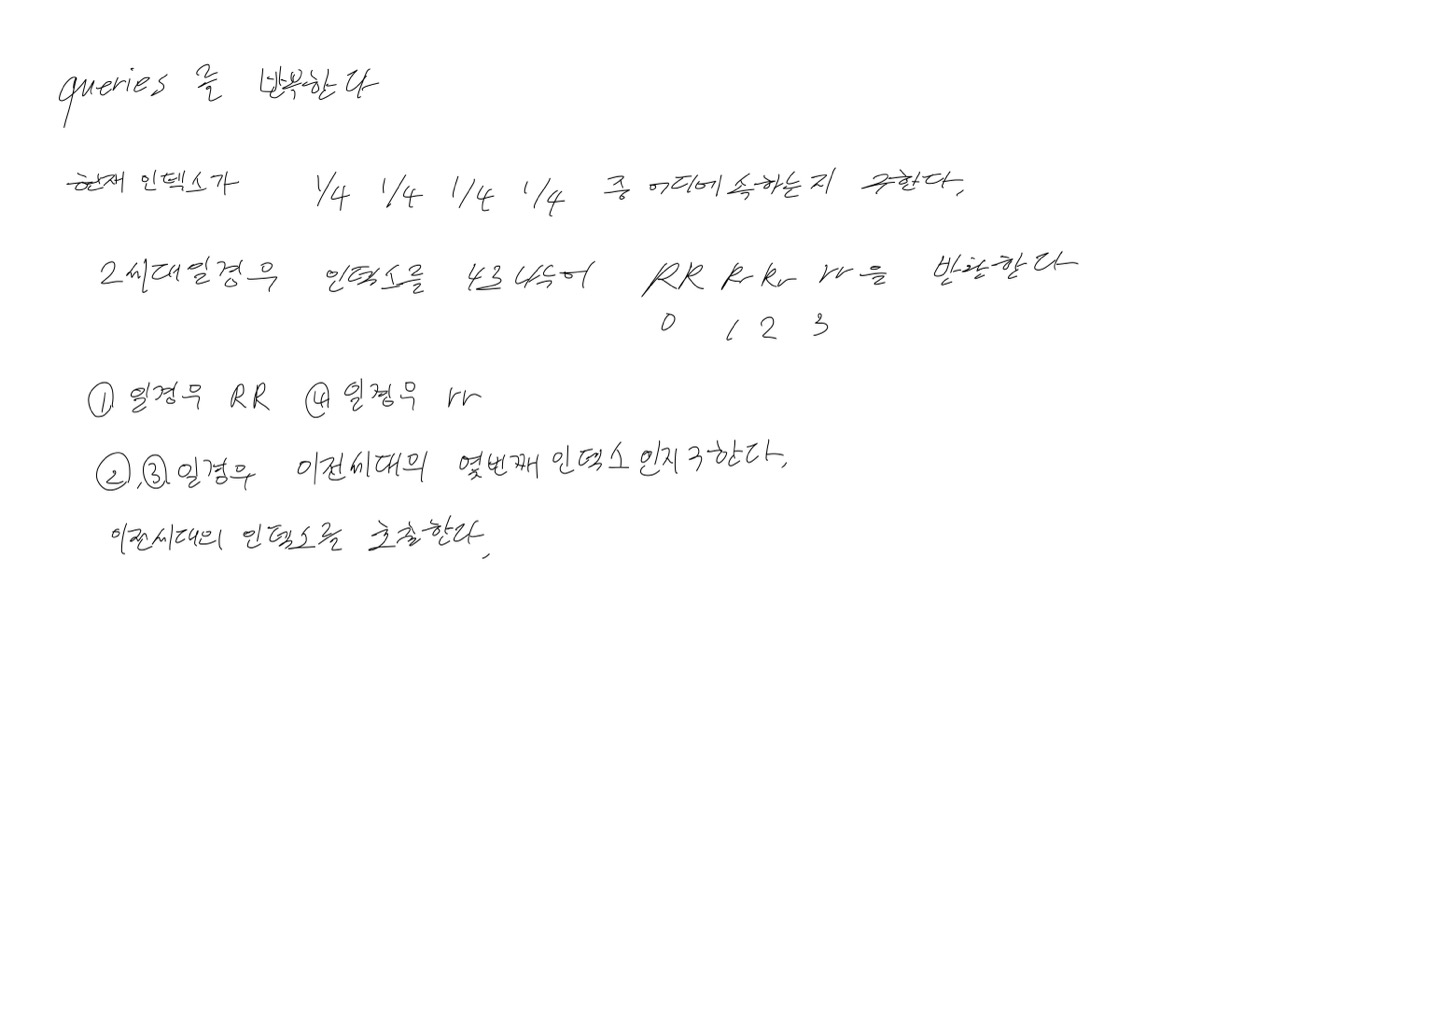 queries 를 반복한다
현재 인덱스가 1/4 1/4 1/4 1/4 중 어디에 속하는지 구한다.
2세대일경우 인덱스를 4로 나누어 RR Rr Rr rr을 반환한다
0 1 2 3
① 일경우 RR ④ 일경우 rr
②,③ 일경우 이전세대의 몇번째 인덱스 인지 구한다.
이전세대의 인덱스를 호출한다.